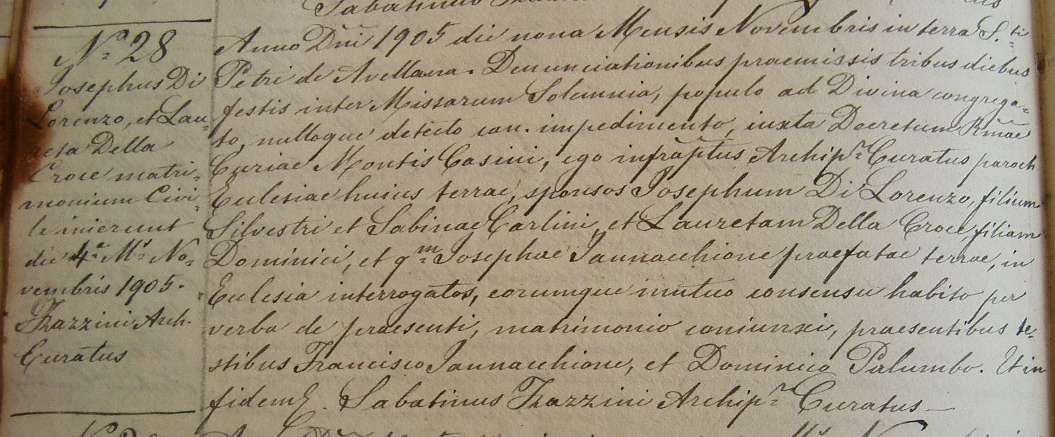 Sabatinus Frazzini
Nº 28
Josephus Di
Lorenzo, et Lau=
reta Della
Croce matri=
monium Civi=
le inierunt
die 4ª Mˢ No=
vembris 1905.
Frazzini Arch.
Curatus
Anno Dñi 1905 die nona Mensis Novembris in terra S.ti
Petri de Avellana. Denunciationibus praemissis tribus diebus
festis inter Missarum Solemnia, populo ad Divina congrega=
to, nulloque detecto can. impedimento, iuxta Decretum Rmae
Curiae Montis Casini, ego infraptus Archipr Curatus paroch
Eclesiae huius terrae, sponsos Josephum Di Lorenzo, filium
Silvestri et Sabinae Carlini, et Lauretam Della Croce, filiam
Dominici, et qm Josephae Jannacchione praefatae terrae, in
Eclesia interrogatos, eorumque mutuo consensu habito per
verba de praesenti, matrimonio coniunxi, praesentibus te=
stibus Francisco Jannacchione, et Dominico Palumbo. Et in
fidem. Sabatinus Frazzini Archipr Curatus